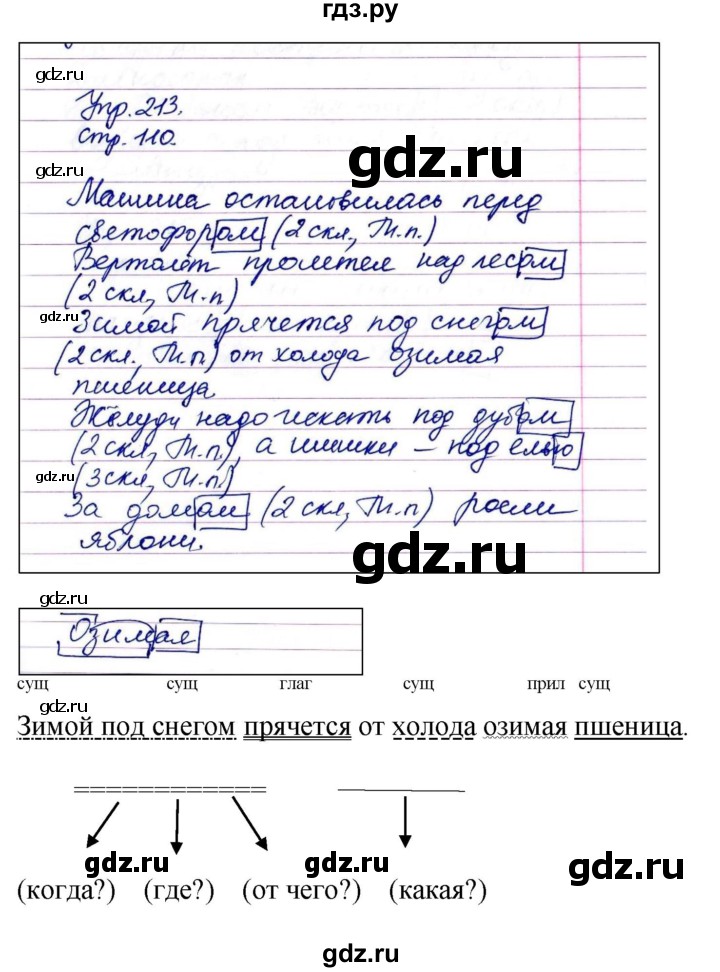 гдз.ру
gdz.ru
Упр. 213.
Стр. 110.
gdz.ru
gdz.ru
Машина остановилась перед
светофором (2 скл, Т.п.)
Вертолёт пролетел над лесом
(2 скл, Т.п)
gdz.ru
Зимой прячется под снегом
(2 скл, Т.п.) от холода озимая
пшеница.
Жёлуди надо искать под дубом
(2 скл, Т.п.), а шишки – под елью
(3 скл, Т.п.)
За домом (2 скл, Т.п) росли
яблони.
gdz.ru
gdz.ru
Озимая
сущ сущ глаг сущ прил сущ
gdz.ru
gdz.ru
Зимой под снегом прячется от холода озимая пшеница.
gdz.ru gdz.ru gdz.ru
(когда?) (где?) (от чего?) (какая?)
gdz.ru